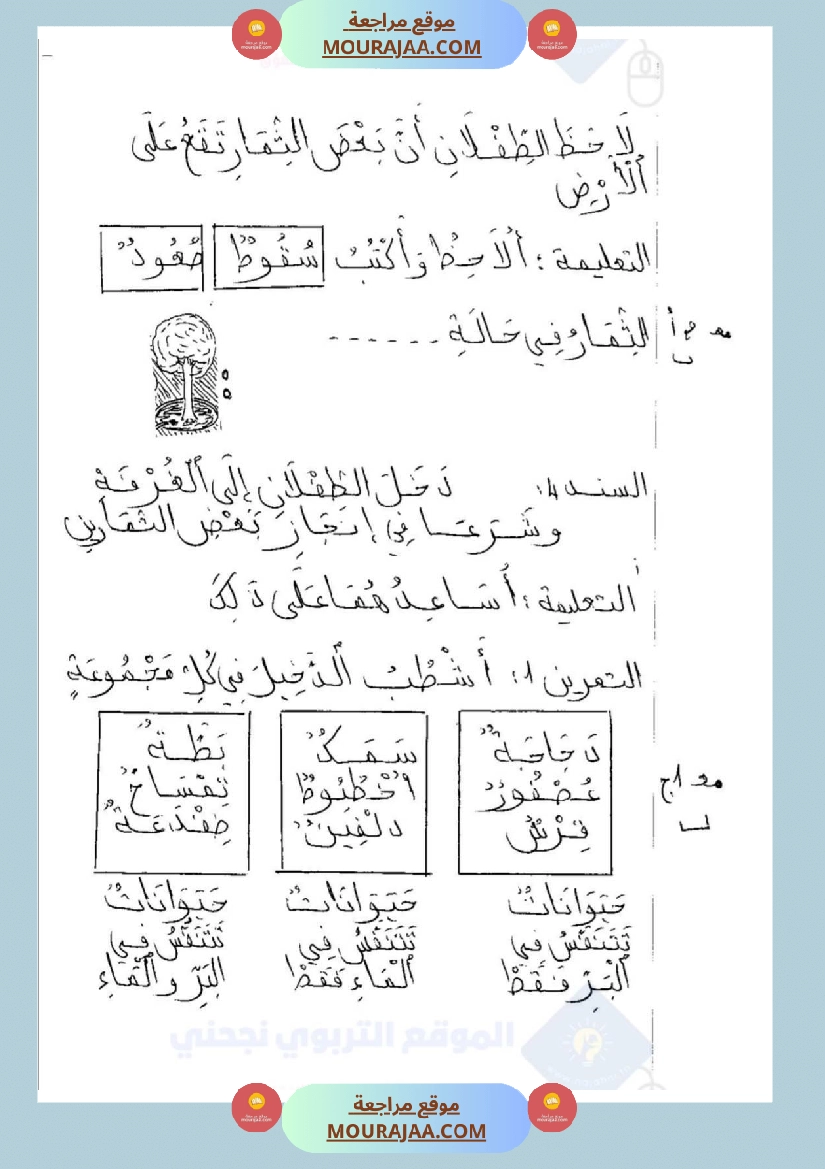 موقع مراجعة
MOURAJAA.COM
لَاحَظَ الطِّفْلَانِ أَنَّ بَعْضَ الثِّمَارِ تَقَعُ عَلَى
الْأَرْضِ
التعليمة : أُلَاحِظُ وَ أَكْتُبُ سُقُوطٌ صُعُودٌ
الثِّمَارُ فِي حَالَةِ ......
مع 3 أ
السند 4: دَخَلَ الطِّفْلَانِ إِلَى الْغُرْفَةِ
وشَرَعَا فِي إِنْجَازِ بَعْضِ التَّمَارِينِ
التعليمة : أُسَاعِدُ هُمَا عَلَى ذَلِكَ
التمرين 1: أَشْطُبُ الدَّخِيلَ فِي كُلِّ مَجْمُوعَةٍ
دَجَاجَةٌ سَمَكٌ بَطَّةٌ
عُصْفُورٌ أُخْطُبُوطٌ تِمْسَاحٌ
قِرْشٌ دلْفِينٌ ضِفْدَعَةٌ
مع 1 ج
حَيَوَانَاتٌ حَيَوَانَاتٌ حَيَوَانَاتٌ
تَتَنَفَّسُ فِي تَتَنَفَّسُ فِي تَتَنَفَّسُ فِي
الْبَرِّ فَقَطْ الْمَاءِ فَقَطْ البَرِّ و الْمَاءِ
الموقع التربوي نجحني
موقع مراجعة
MOURAJAA.COM